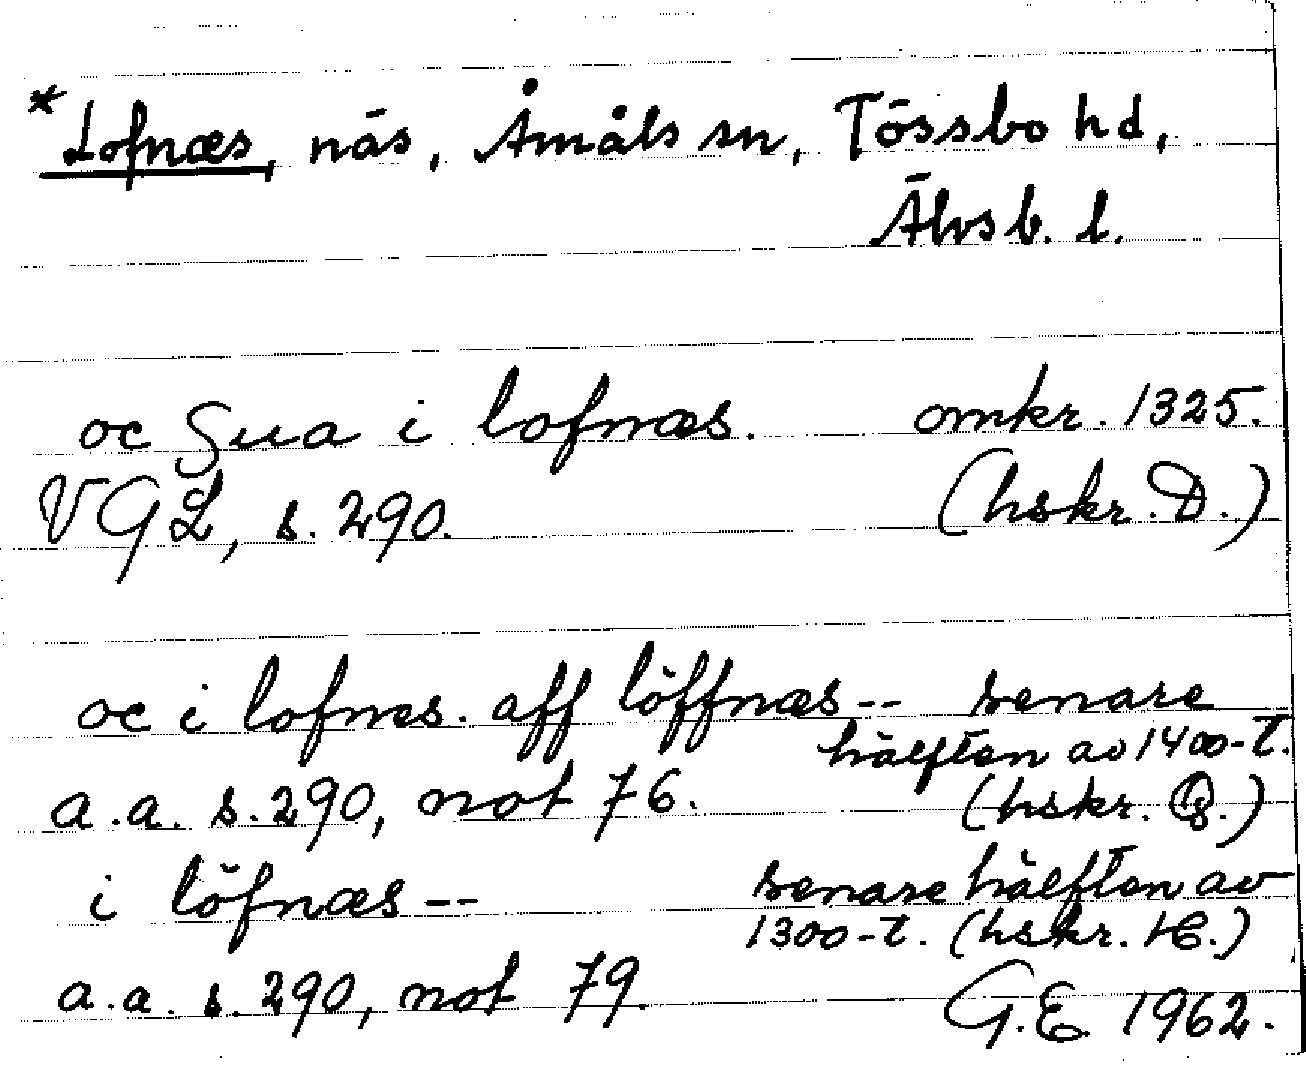 *Lofnæs, näs, Åmåls sn, Tössbo hd,
Älvsb. l.
oc Sua i lofnæs. omkr. 1325.
VGL, s. 290. (hskr. D.)
oc i lofnes. aff löffnæs -- senare
hälften av 1400-t.
a.a. s. 290, not 76. (hskr. B.)
i löfnæs -- senare hälften av
1300-t. (hskr. H.)
a.a. s. 290, not 79. G.E. 1962.